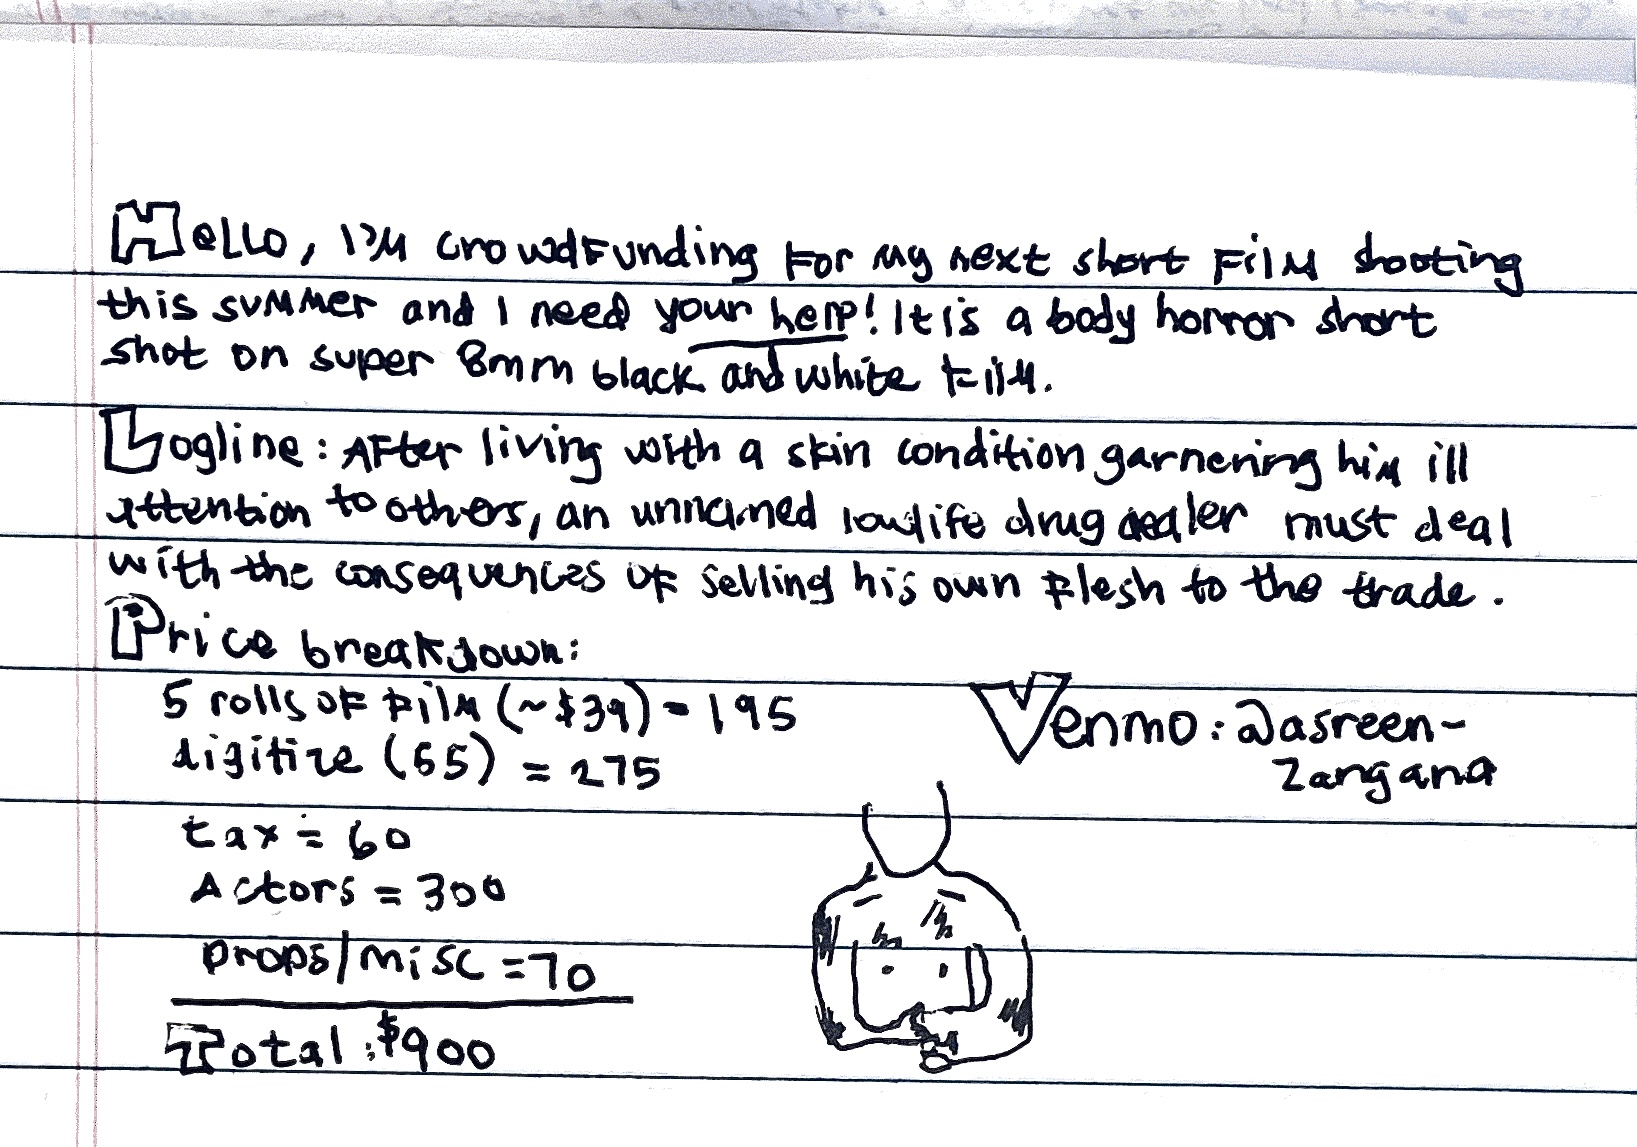 Hello, I'm crowdfunding for my next short film shooting
this summer and I need your help! It is a body horror short
shot on super 8mm black and white film.
Logline: After living with a skin condition garnering him ill
attention to others, an unnamed lowlife drug dealer must deal
with the consequences of selling his own flesh to the trade.
Price breakdown:
5 rolls of film (~$39) = 195
digitize (55) = 275
tax = 60
Actors = 300
props/misc = 70
Total: $900
Venmo: @asreen-
zangana